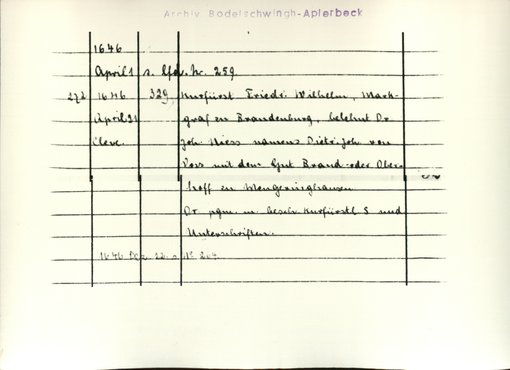 Archiv Bodelschwingh-Aplerbeck
1646
April 1 s. lfd. Nr. 259
272 1646 329, Kurfürst Friedr. Wilhelm, Mark-
April 21 graf zu Brandenburg, belehnt Dr
Cleve. Joh. Niess namens Dietr. Joh. von
Voss mit dem Gut Brand- oder Ober-
hoff zu Mengeringhausen
Or. pgm. m. besch. Kurfürstl. S und
Unterschriften.
1646 22 s. Nr. 204